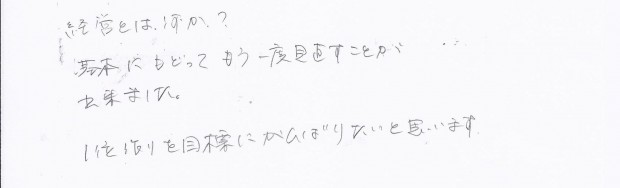 経営とは、何か?
基本にもどってもう一度見直すことが
出来ました。
1位作りを目標にがんばりたいと思います